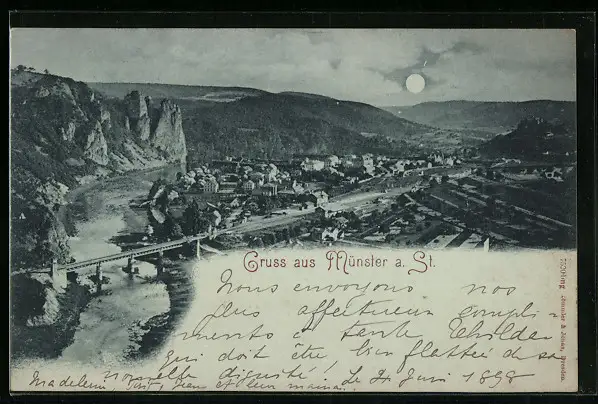 Gruss aus Münster a. St.
Nous envoyons nos
plus affectueux compli-
mento à tante
qui doit être bien flattée de sa
nouvelle dignité, Le 2 Juin 1898
Madeleine, Jean et leur maman